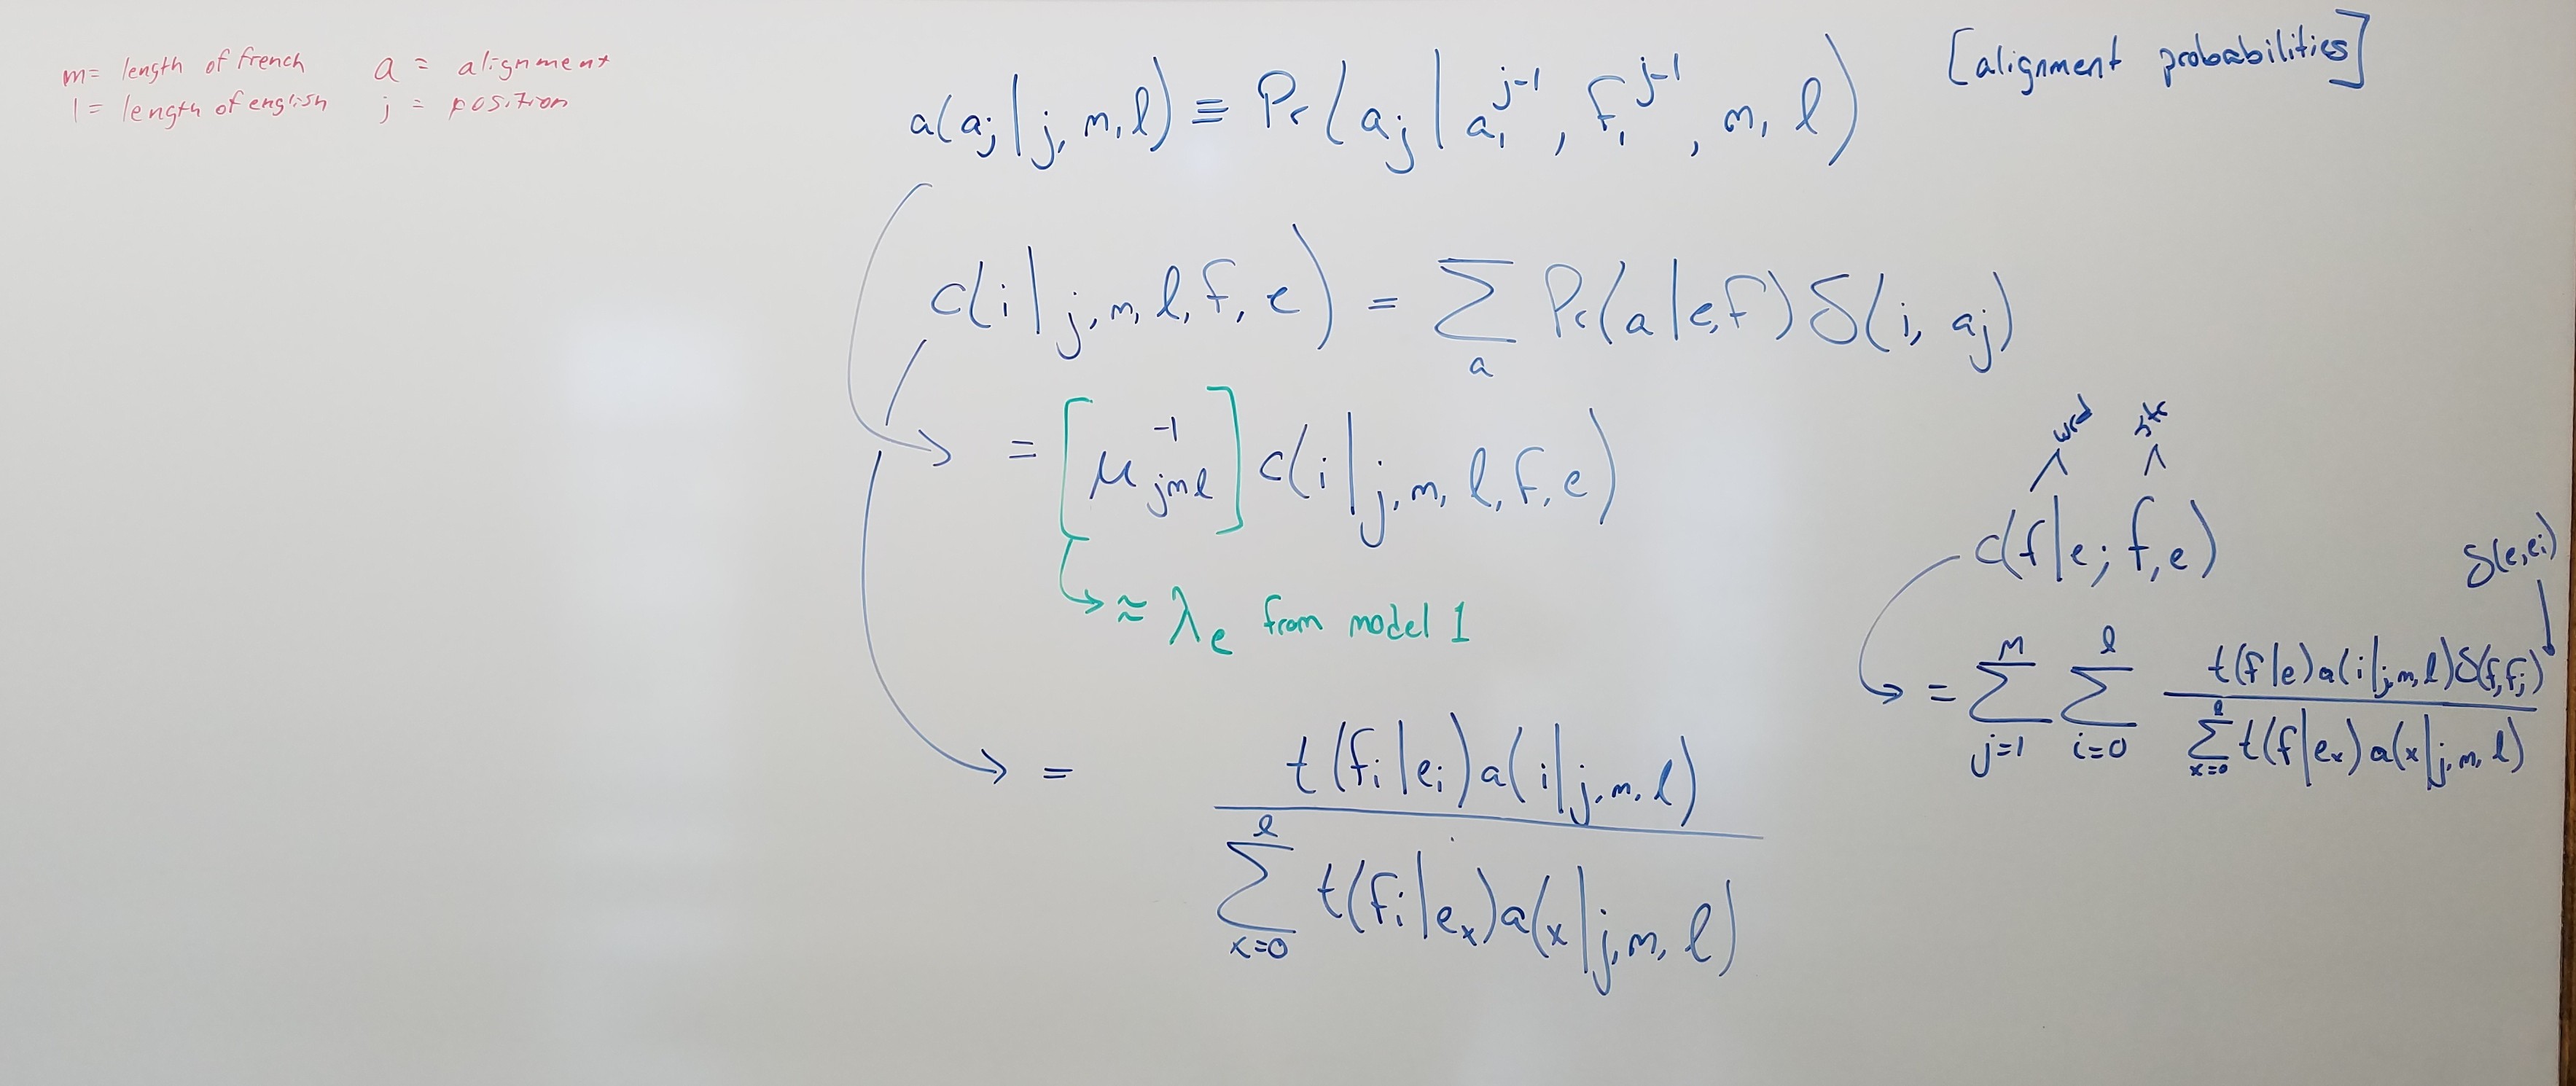 m= length of french a = alignment
l = length of english j = position
a(a_j | j, m, l) ≡ Pr(a_j | a_1^{j-1}, f_1^{j-1}, m, l)
[alignment probabilities]
c(i | j, m, l, f, e) = ∑_a Pr(a | e, f) δ(i, a_j)
= [μ_{jml}^{-1}] c(i | j, m, l, f, e)
≈ λ_e from model 1
= t(f_i | e_i) a(i | j, m, l)
∑_{x=0}^{l} t(f_i | e_x) a(x | j, m, l)
word str
c(f | e; f, e)
δ(e, e_i)
= ∑_{j=1}^{m} ∑_{i=0}^{l} t(f | e) a(i | j, m, l) δ(f, f_j)
∑_{x=0}^{l} t(f | e_x) a(x | j, m, l)